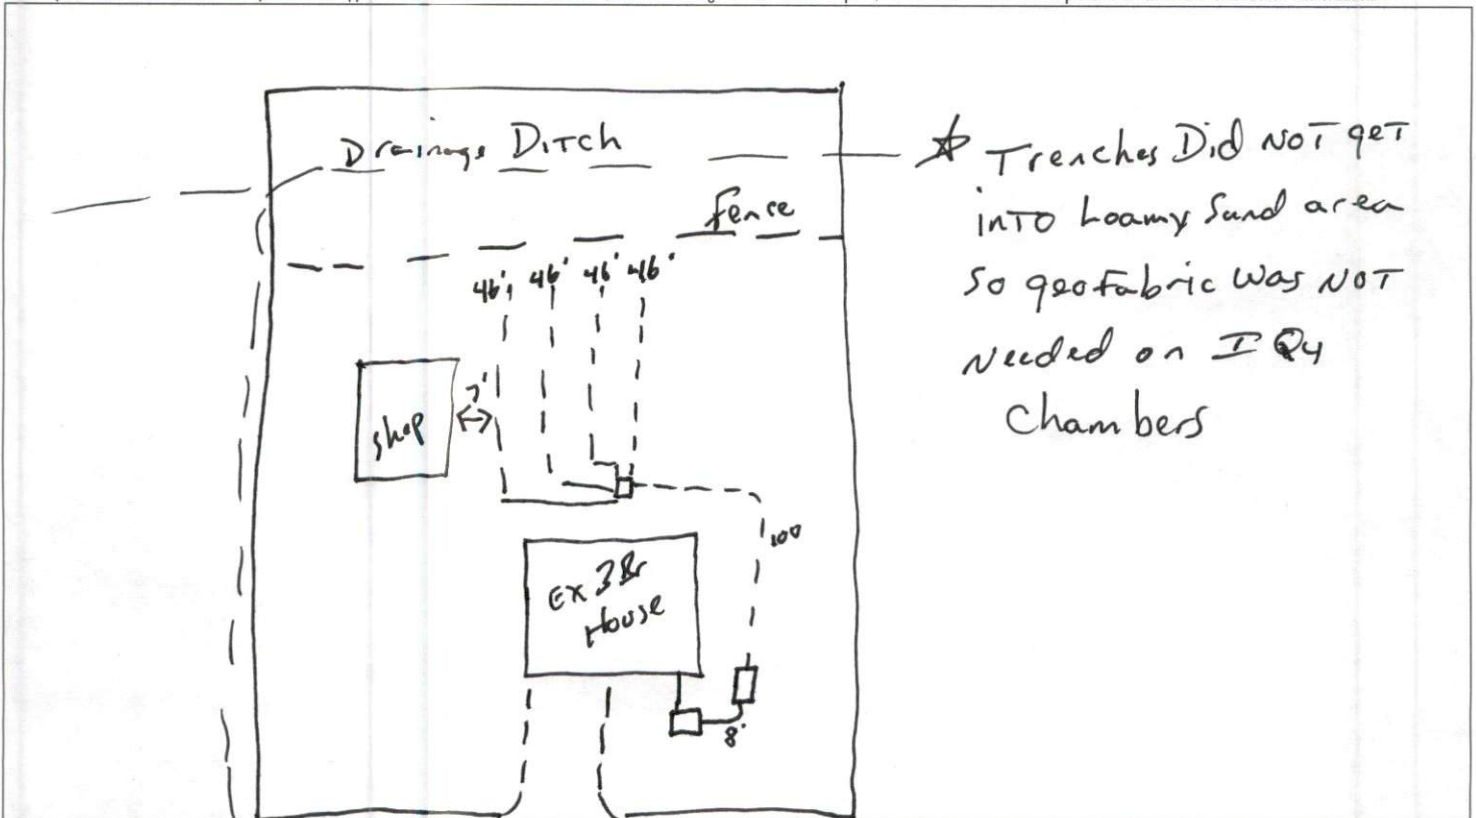 Drainage Ditch
fence
46' 46' 46' 46'
7'
shop
100
EX 3Br
House
8'
☆ Trenches Did NOT get
inTO Loamy Sand area
So geofabric was NOT
Needed on IQ4
Chambers